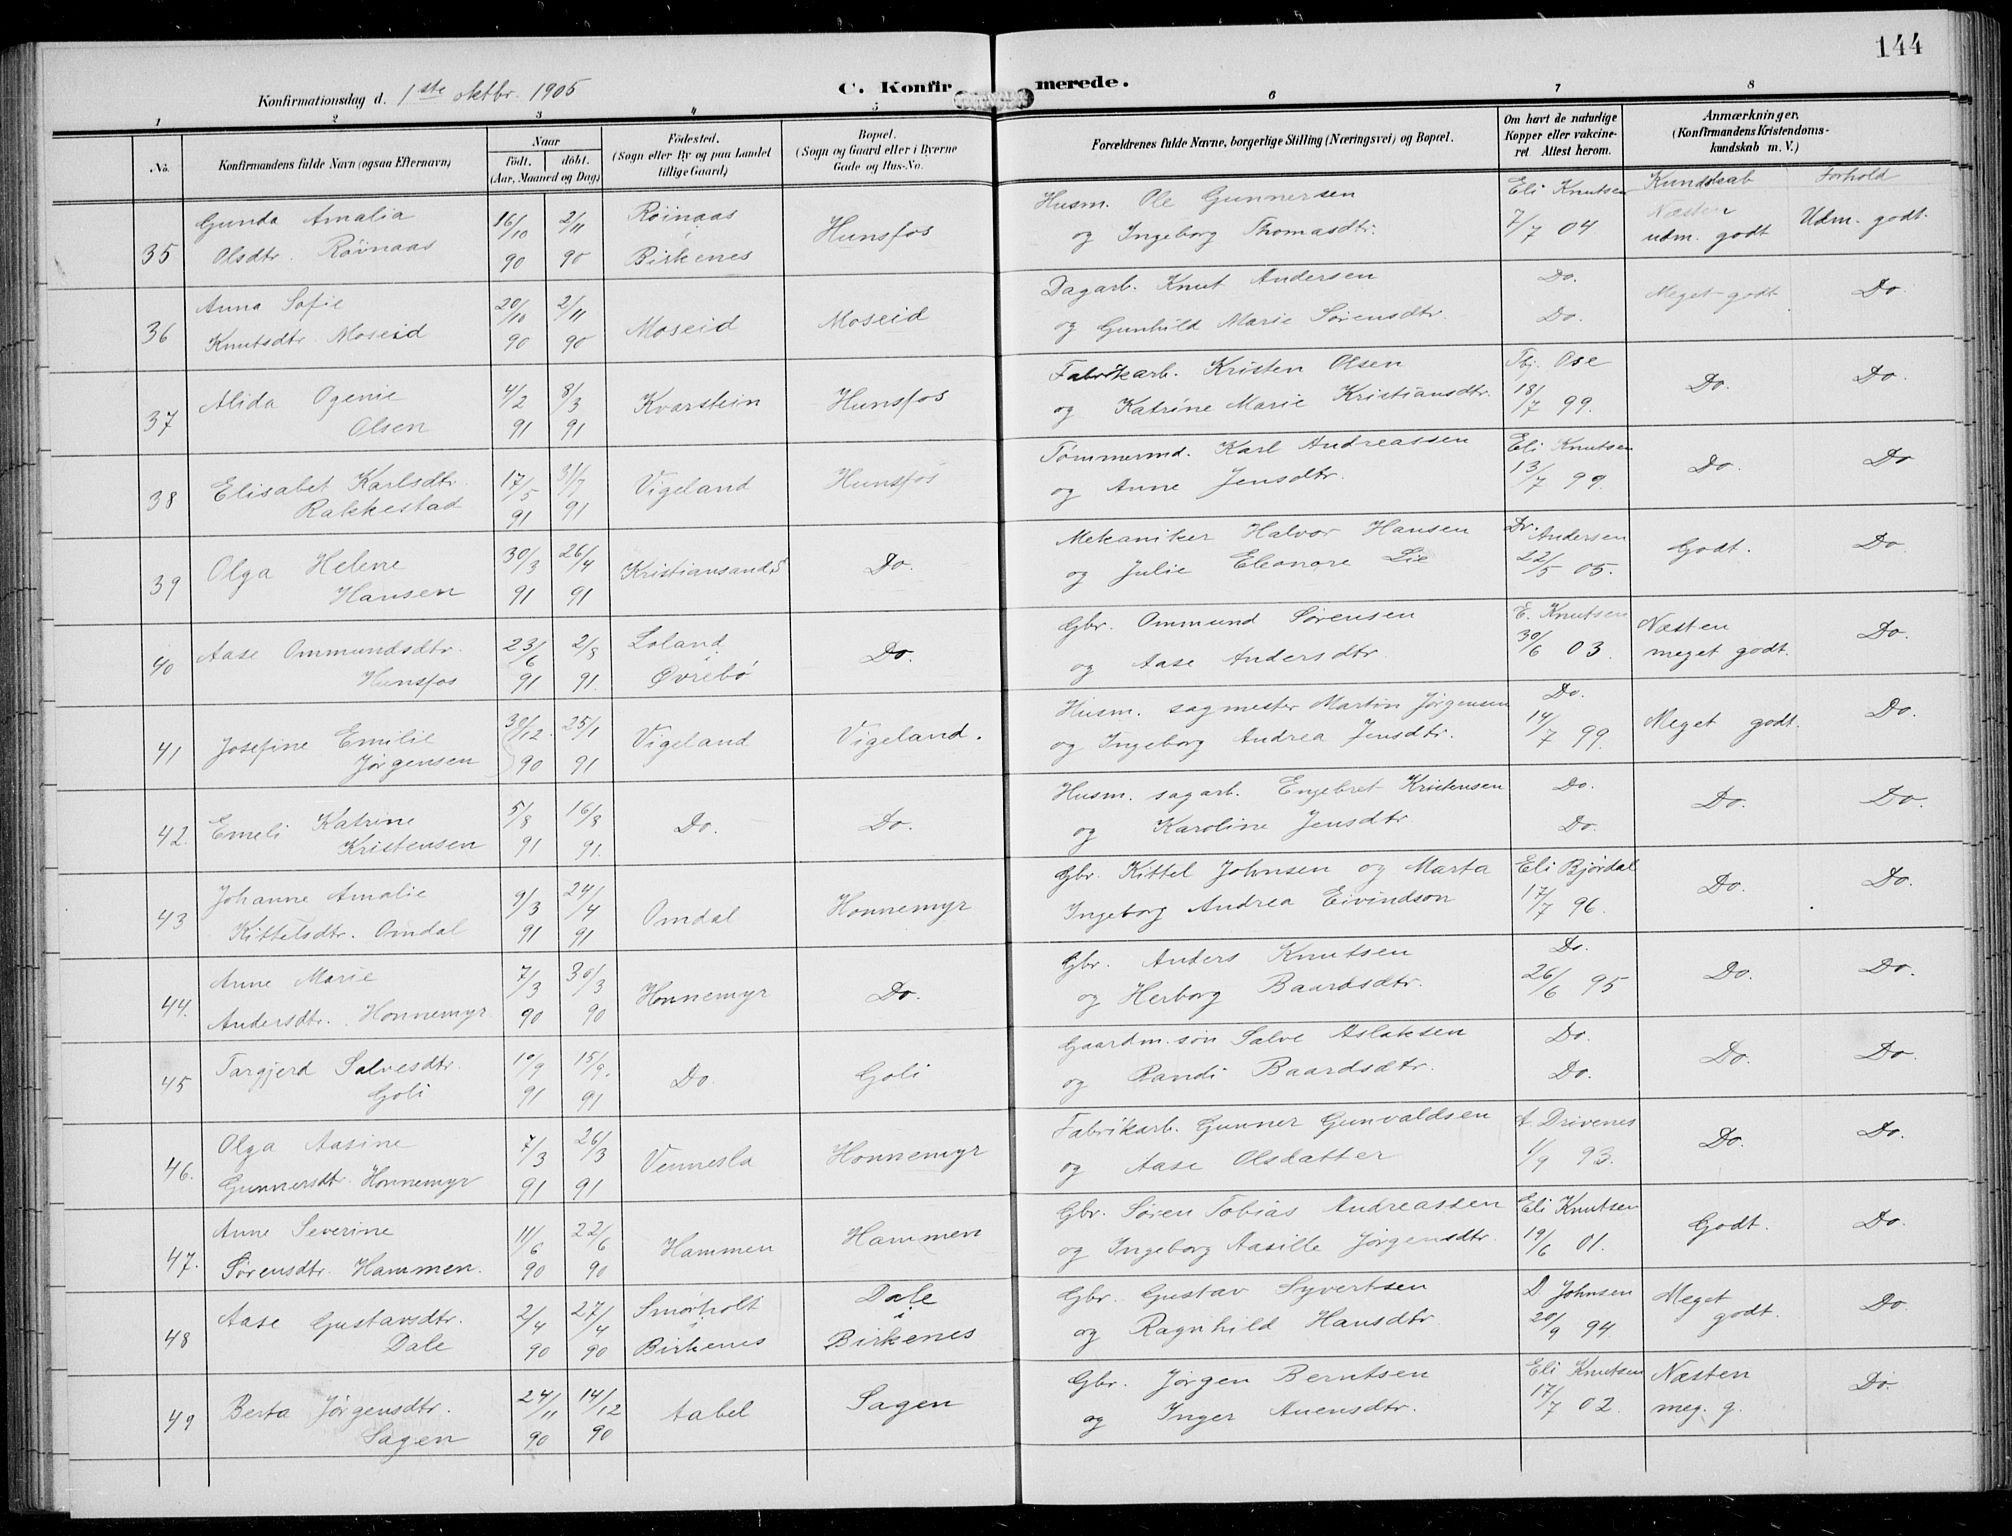 144
Konfirmationsdag d. 1ste oktbr. 1905
C. Konfirmerede.
1 2 3 4 5 6 7 8
No.
Konfirmandens fulde Navn (ogsaa Efternavn)
Naar
født. døbt.
(Aar, Maaned og Dag)
Födested.
(Sogn eller By og paa Landet
tillige Gaard)
Bopæl.
(Sogn og Gaard eller i Byerne
Gade og Hus-No.
Forældrenes fulde Navne, borgerlige Stilling (Næringsvei) og Bopæl.
Om havt de naturlige
Kopper eller vakcine-
ret Attest herom.
Anmærkninger.
(Konfirmandens Kristendoms-
kundskab m. V.)
Kundskab Forhold
35 Gunda Amalia 16/10 2/11 Röinaas Hunsfos Husm. Ole Gunnersen Eli Knutsen Næsten Udm. godt.
Olsdtr. Røinaas 90 90 i Birkenes og Ingeborg Thomasdtr. 7/7 04 udm. godt
36 Anna Sofie 20/10 2/11 Moseid Moseid Dagarb. Knut Andersen Do. Meget godt Do.
Knutsdtr. Moseid 90 90 og Gunhild Marie Sørensdtr. Do.
37 Alida Ogenie 4/2 8/3 Kvarstein Hunsfos Fabrikarb. Kristen Olsen Tbj. Ose Do. Do.
Olsen 91 91 og Katrine Marie Kristiansdtr. 18/7 99.
38 Elisabet Karlsdtr. 17/5 31/7 Vigeland Hunsfos Tømmermd. Karl Andreassen Eli Knutsen Do. Do
Rakkestad 91 91 og Anne Jensdtr. 13/7 99.
39 Olga Helene 30/3 26/4 Kristiansands Do. Mekaniker Halvor Hansen Dr. Andersen Godt. Do.
Hansen 91 91 og Julie Eleonore Lie 22/5 05.
40 Aase Ommundsdtr. 23/6 2/8 Loland Do. Gbr. Ommund Sørensen E. Knutsen Næsten Do.
Hunsfos 91 91. Øvrebø og Aase Andersdtr. 30/6 03. meget godt.
41 Josefine Emilie 30/12 25/1 Vigeland Vigeland. Husm. sagmester Martin Jørgensen Do. Meget godt. Do.
Jørgensen 90 91 og Ingeborg Andrea Jensdtr. 14/7 99.
42 Emeli Katrine 5/8 16/8 Do. Do. Husm. sagarb. Engebret Kristensen Do. Do. Do.
Kristensen 91 91. og Karoline Jensdtr Do.
43 Johanne Amalie 9/3 24/4 Omdal Honnemyr Gbr. Kittel Johnsen og Marta Eli Bjørdal Do. Do.
Kittelsdtr. Omdal 91 91 Ingeborg Andrea Eivindson 17/7 96.
44. Anne Marie 7/3 30/3 Honnemyr Do. Gbr. Anders Knutsen Do. Do. Do.
Andersdtr. Honnemyr 90 90 og Herborg Baardsdtr. 26/6 95
45 Targjerd Salvesdtr. 10/9 15/9. Do. Goli Gaardm.søn Salve Aslaksen Do. Do. Do.
Goli 91 91 og Randi Baardsdtr. Do.
46. Olga Aasine 7/3 26/3 Vennesla Honnemyr Fabrikarb. Gunner Gunvaldsen A. Drivenes Do. Do.
Gunnersdtr. Honnemyr 91 91 og Aase Olsdatter 1/9 93.
47. Anne Severine 11/6 22/6 Hammen Hammen Gbr. Søren Tobias Andreassen Eli Knutsen Godt. Do.
Sørensdtr. Hammen. 90 90 og Ingeborg Aasille Jørgensdtr. 19/6 01.
48 Aase Gustavsdtr. 2/4 27/4 Smörholt Dale Gbr. Gustav Syvertsen D. Johnsen Meget Do.
Dale 90 90 i Birkenes i Birkenes og Ragnhild Hansdtr. 20/9 94 godt.
49 Berta Jørgensdtr. 24/11 14/12 Aabel Sagen Gbr. Jørgen Berntsen Eli Knutsen Næsten Do.
Sagen 90 90 og Inger Auensdtr. 17/7 02. meg. g.